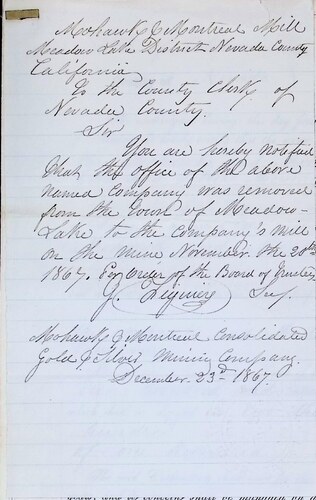 Mohawk & Montreal Mill
Meadow Lake District Nevada County
California
To the County Clerk of
Nevada County.
Sir
You are hereby notified
that the office of the above
named Company was removed
from the town of Meadow
Lake to the Company's mill
on the mine November the 20th
1867. Per Order of the Board of Trustees
J. Squire Secy.
Mohawk & Montreal Consolidated
Gold & Silver Mining Company.
December 23rd 1867.